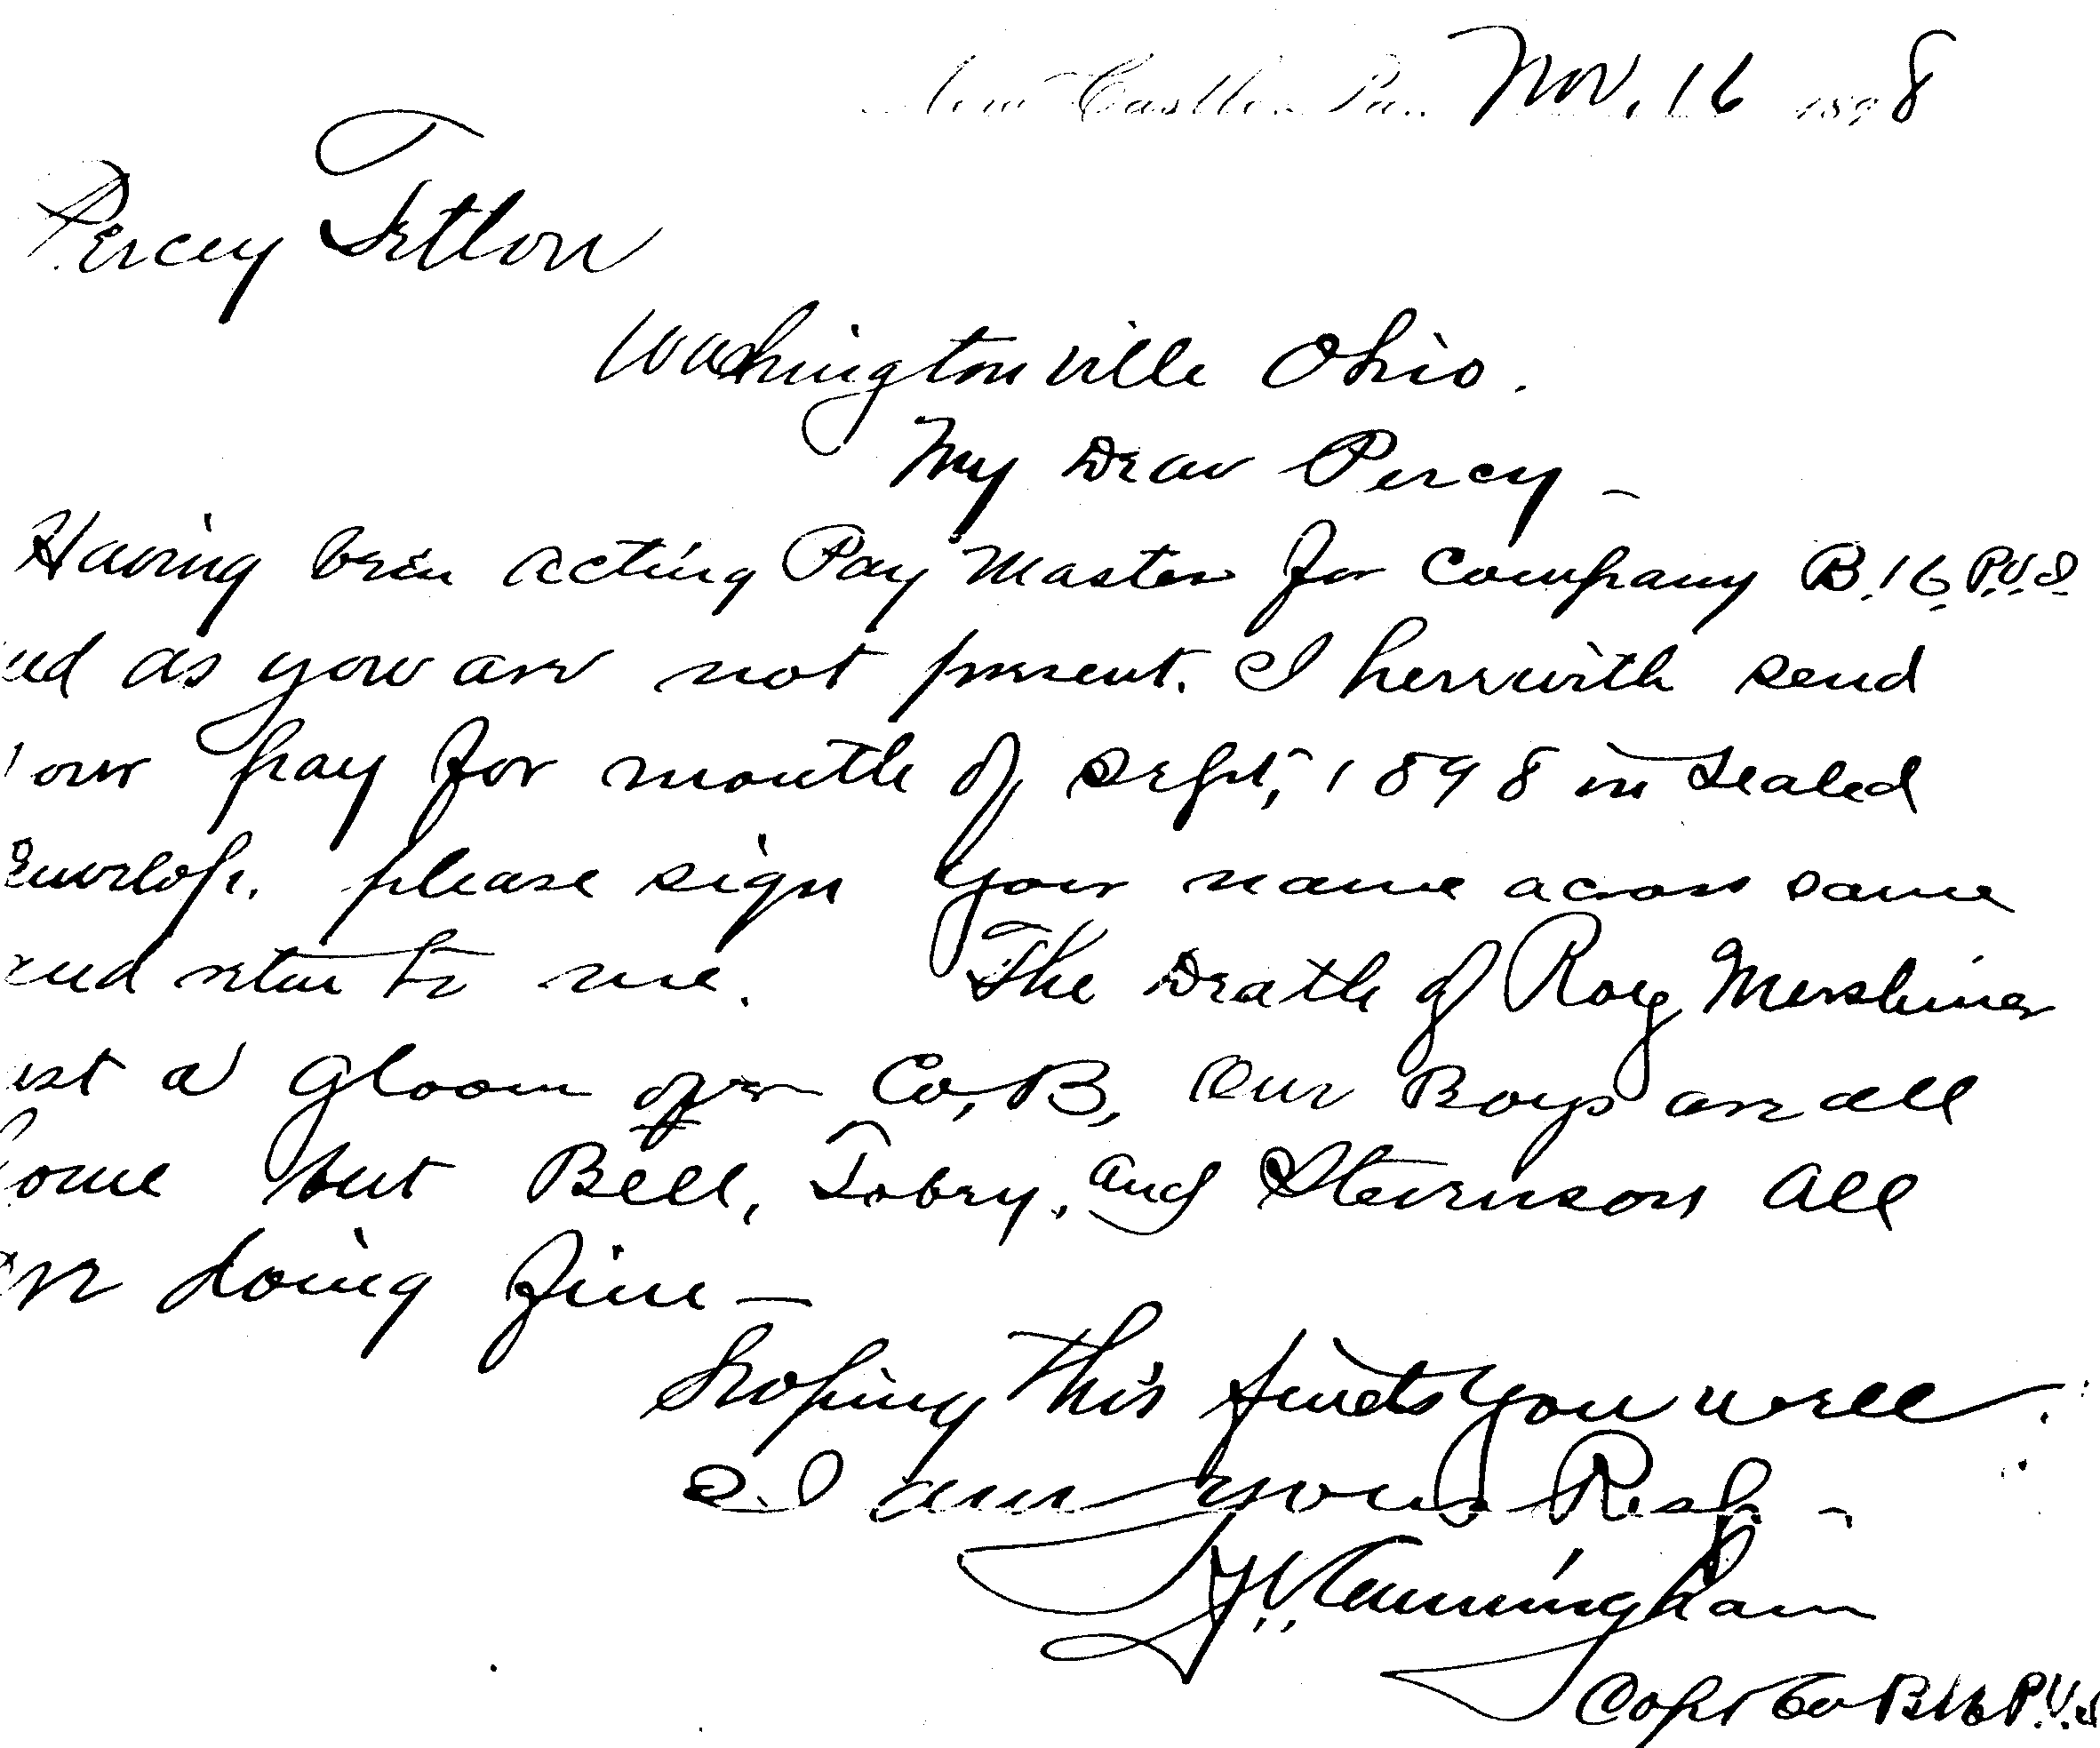 New Castle, Pa. Nov. 16 1898
Percey Tetlow
Washingtonville Ohio.
My Dear Percy –
Having been acting Pay Master for Company B. 16 P.V.I
and as you are not present. I herewith send
your pay for month of Sept, 1898 in sealed
Envelop. please sign your name across same
and retur to me. The Death of Roy
ast a gloom over Co, B, Our Boys are all
home but Bell, Tobey, and Stevenson all
are doing fine –
hoping this finds you well.
I am yours Resp –
Cunningham
Capt Co B 16 P.V.I